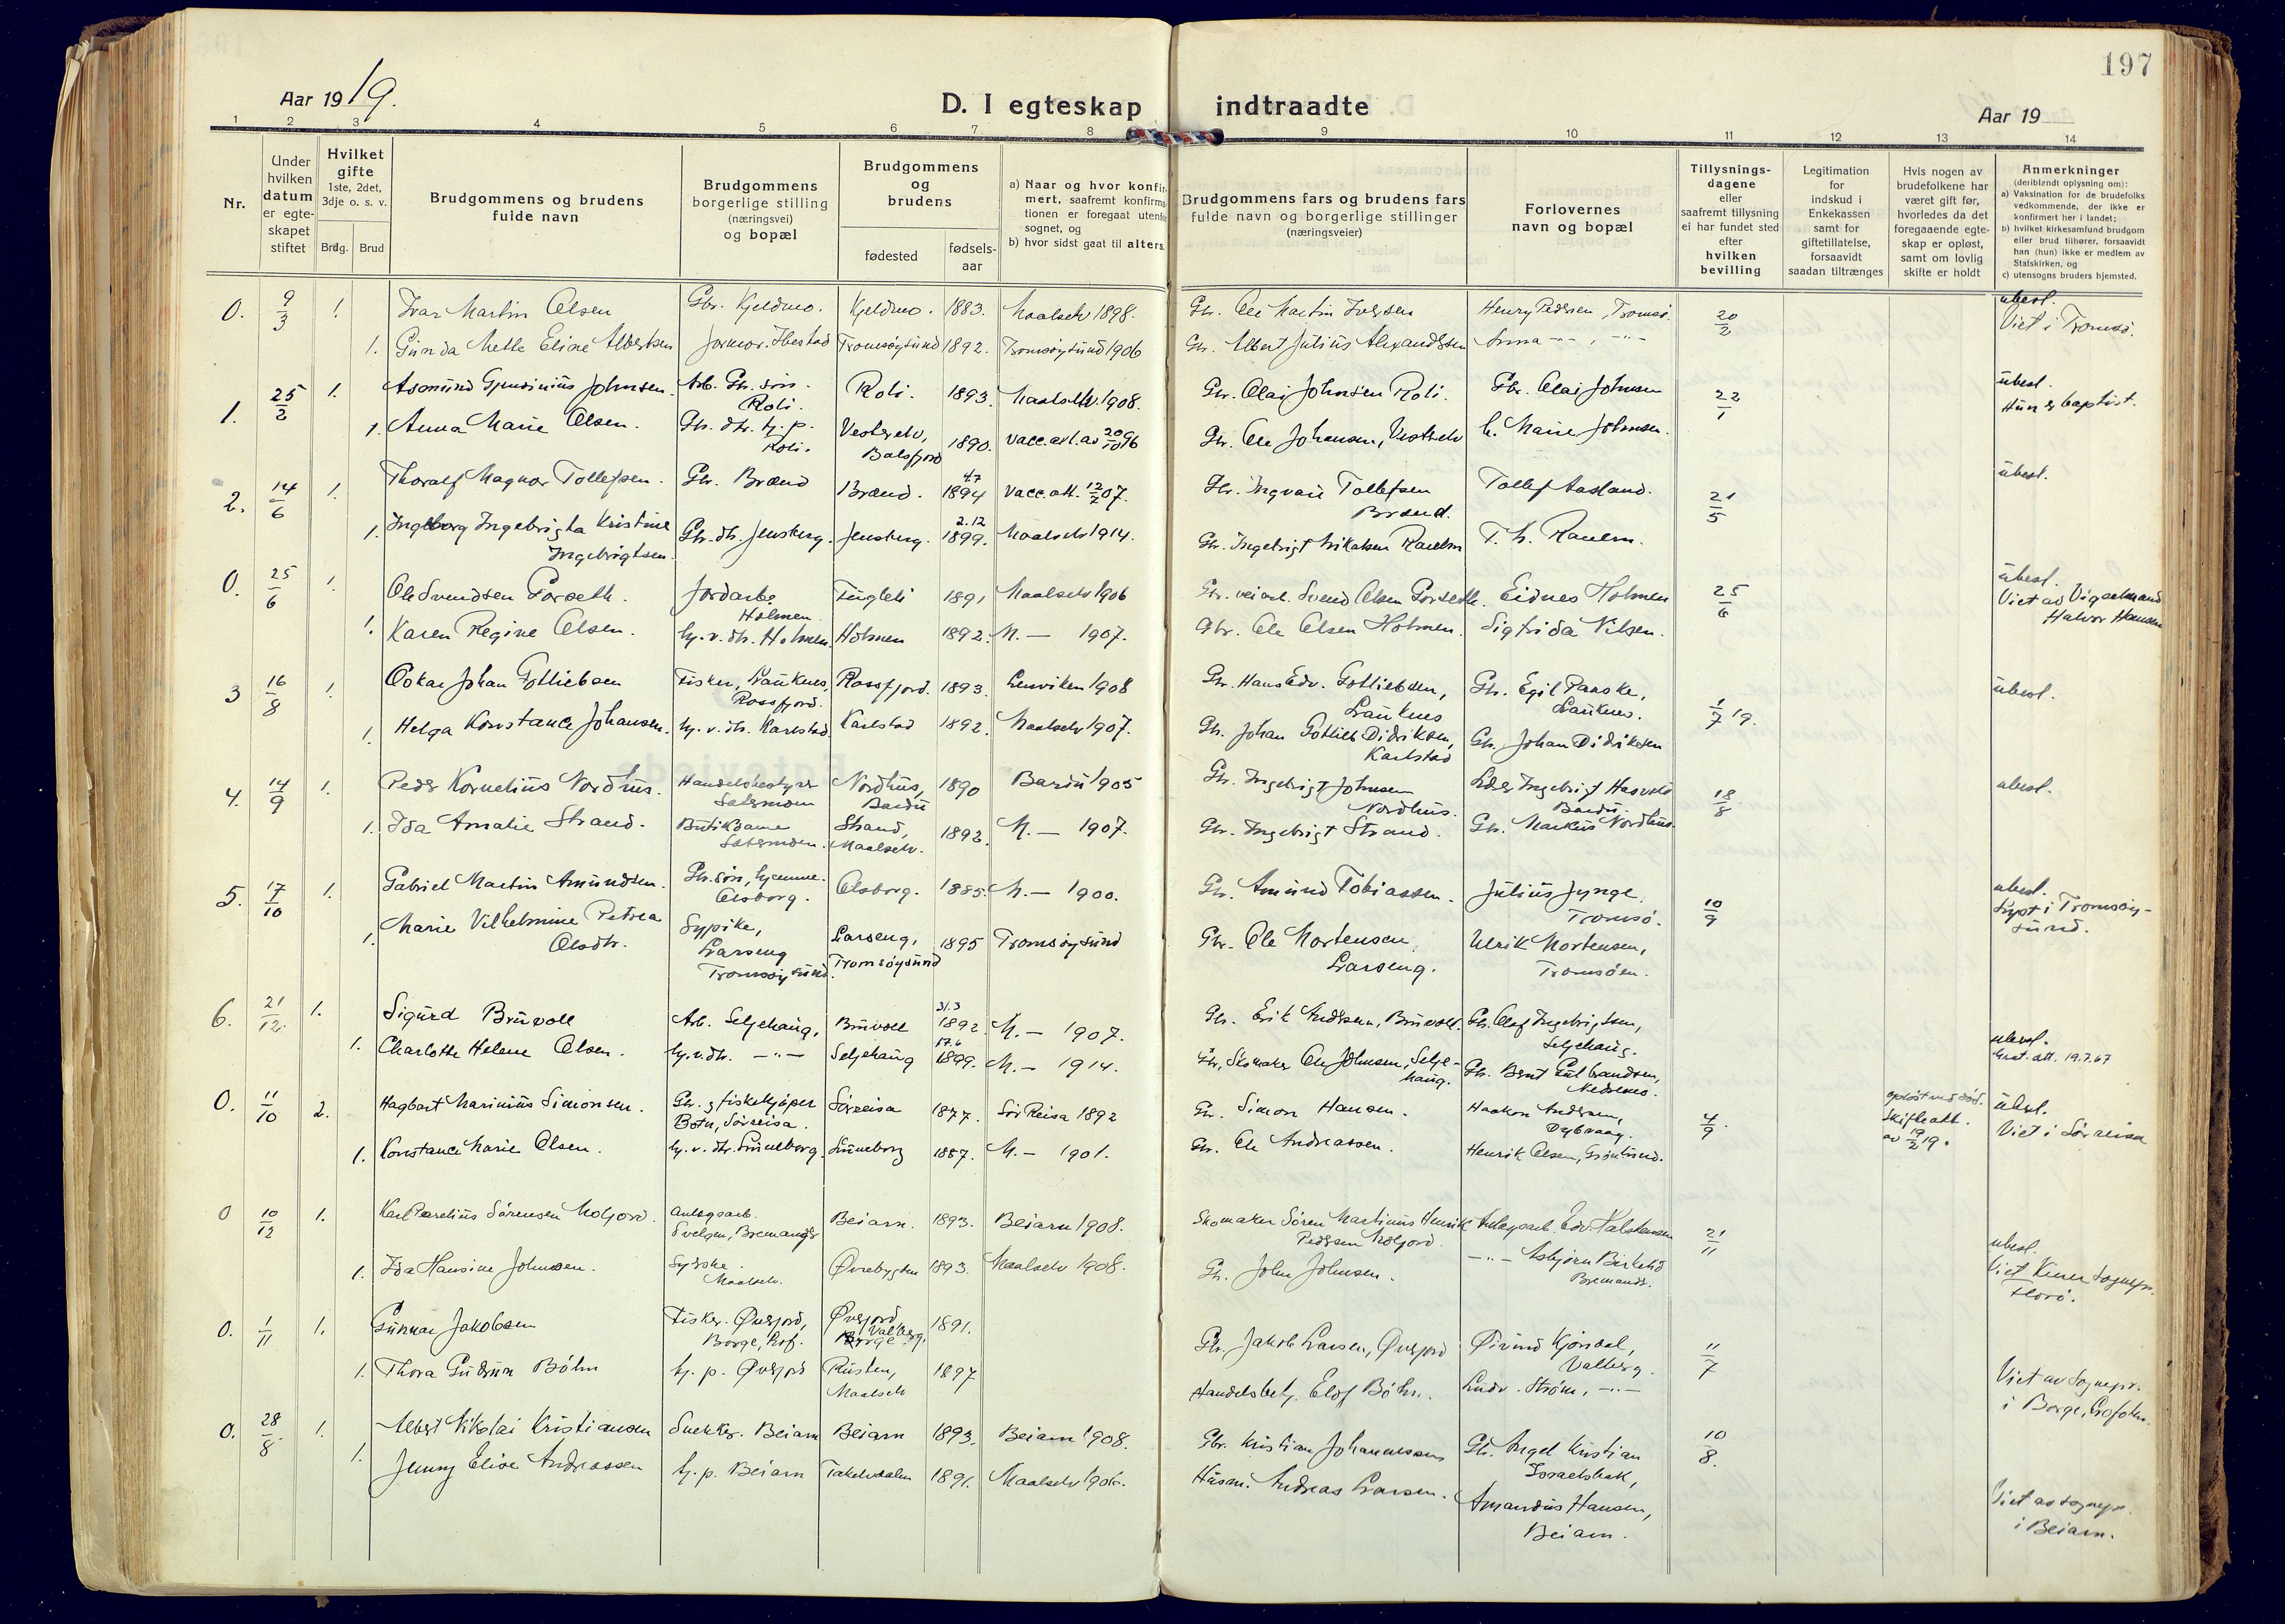 197
Aar 19 19.
D. I egteskap indtraadte
Aar 19
1 2 3 4 5 6 7 8 9 10 11 12 13 14
Nr.
Under hvilken datum er egteskapet stiftet
Hvilket gifte 1ste, 2det, 3dje o. s. v.
Brdg. Brud
Brudgommens og brudens fulde navn
Brudgommens borgerlige stilling (næringsvei) og bopæl
Brudgommens og brudens
fødested
fødsels-aar
a) Naar og hvor konfirmert, saafremt konfirmationen er foregaat utenfor sognet, og
b) hvor sidst gaat til alters.
Brudgommens fars og brudens fars fulde navn og borgerlige stillinger (næringsveier)
Forlovernes navn og bopæl
Tillysningsdagene eller saafremt tillysning ei har fundet sted efter hvilken bevilling
Legitimation for indskud i Enkekassen samt for giftetillatelse, forsaavidt saadan tiltrænges
Hvis nogen av brudefolkene har været gift før, hvorledes da det foregaaende egteskap er opløst, samt om lovlig skifte er holdt
Anmerkninger (deriblandt oplysning om):
a) Vaksination for de brudefolks vedkommende, der ikke er konfirmert her i landet;
b) hvilket kirkesamfund brudgom eller brud tilhører, forsaavidt han (hun) ikke er medlem av Statskirken, og
c) utensogns bruders hjemsted.
0. 9/3 1. Ivar Martin Olsen Gbr. Kjeldmo. Kjeldmo. 1883. Maalselv 1898. Gbr. Ole Martin Iversen Henry Pedersen, Tromsø. 20/2 ubesl. Viet i Tromsø.
1. Gunda Mette Eline Albertsen Jormor. Ibestad Tromsøysund 1892. Tromsøysund 1906 Gbr. Albert Julius Alexandersen Anna -"-, -"-
1. 25/2 1. Asmund Gjensinius Johnsen. Arb. Gbr. søn. Roli. Roli. 1893. Maalselv. 1908. Gbr. Olai Johnsen Roli. Gbr. Olai Johnsen 22/1 ubesl. Hun er baptist.
1. Anna Marie Olsen. Gbr. dtr. hj. p. Roli. Vesterelv, Balsfjord 1890. Vacc.att. av 20/10 96 Gbr. Ole Johansen, Vesterelv h. Marie Johnsen.
2. 14/6 1. Thoralf Magnor Tollefsen. Gbr. Brænd Brænd. 4.7 1894 Vacc. att. 12/7 07. Gbr. Ingvart Tollefsen Brænd. Tollef Aasland. 21/5 ubesl.
1. Ingeborg Ingebrigta Kristine Ingebrigtsen. Gbr. dtr. Jensberg. Jensberg. 2.12 1899. Maalselv 1914. Gbr. Ingebrigt Erikssen T. H.
0. 25/6 1. Ole Svendsen Forseth. Jordarb. Holmen Fugleli 1891 Maalselv 1906 Gbr. Svend Olsen Forseth. Eidnes Holmen 25/6 ubesl. Viet av Vigselmand Halvor Hansen
1. Karen Regine Olsen. hj. v. dtr. Holmen. Holmen 1892. M. — 1907. Gbr. Ole Olsen Holmen. Sigfrida Nilsen.
3 16/8 1. Oskar Johan Gottliebsen Fisker, Lauknes, Rossfjord. Rossfjord. 1893. Lenviken 1908 Gbr. Hans Edv. Gottliebsen, Lauknes Gbr. Egil Paaske, Lauknes. 1/7 19. ubesl.
1. Helga Konstance Johansen. hj. v. dtr. Karlstad Karlstad 1892. Maalselv 1907. Gbr. Johan Gottlieb Didriksen, Karlstad Gbr. Johan Didriksen
4. 14/9 1. Peder Kornelius Nordhus. Handelsbestyrer Sætermoen Nordhus, Bardu 1890 Bardu 1905 Gbr. Ingebrigt Johnsen Nordhus. Ingebrigt Bardu. 18/8 ubesl.
1. Ida Amalie Strand. Butikdame Sætermoen. Strand, Maalselv. 1892. M. — 1907. Gbr. Ingebrigt Strand. Gbr. Markus Nordhus.
5. 17/10 1. Gabriel Martin Amundsen. Gbr. søn, hjemme. Olsborg. Olsborg. 1885. M. — 1900. Gbr. Amund Tobiassen. Julius Jynge, Tromsø. 10/9 ubesl. Lyst i Tromsøysund.
1. Marie Vilhelmine Petrea Olsdtr. Sypike, Larseng Tromsøysund. Larseng, Tromsøysund 1895 Tromsøysund Gbr. Ole Mortensen, Larseng. Ulrik Mortensen, Tromsøen.
6. 21/12. 1. Sigurd Bruvoll Arb. Seljehaug, Bruvoll 31.3 1892. M. — 1907. Gbr. Erik Andersen, Bruvoll. Gbr. Olaf Ingebrigtsen, Seljehaug. ubesl. att. 19.7.67
1. Charlotte Helene Olsen. hj. v. dtr. -"- Seljehaug 17.6 1899. M. — 1914. Gbr. Skomaker Ole Johnsen, Seljehaug. Gbr. Bernt Gulbrandsen,
0. 11/10 2. Hagbart Marinius Simonsen. Gbr. & fiskekjøper Botn, Sørreisa. Sørreisa 1877. Sør Reisa 1892 Gbr. Simon Hansen. Haakon Andersen, Dybvaag. 4/9. opløst ved død. Skifteatt. av 19/2 19. ubesl. Viet i Sørreisa
1. Konstance Marie Olsen. hj. v. dtr. Luneborg. Luneborg 1887. M. — 1901. Gbr. Ole Andreassen. Henrik Olsen, Grøntund.
0 10/12 1. Karl Parelius Sørensen Moljord. anlegsarb. Svelgen, Bremanger Beiarn. 1893. Beiarn 1908. Skomaker Søren Martinus Henrik Pedersen Moljord. Anlegsarb. Edv. 21/11 ubesl. Viet Kinn Sognepr. Florø.
1. Ida Hansine Johnsen. Syerske. Maalselv. Øvrebygden 1893. Maalselv 1908. Gbr. John Johnsen. -"- Asbjørn Birkelid Bremander.
0. 1/11 1. Gunnar Jakobsen Fisker. Øversjord, Borge, Lof. Øversjord Valberg. 1891. Gbr. Jakob Larsen, Øversjord Øivind Kjøndal, Valberg. 11/7 Viet av Sognepr. i Borge, Lofoten.
1. Thora Gudrun Bøhn hj. p. Øversjord Rusten, Maalselv 1897 Handelsbetj. Elof Bøhn. Ludv. Strøm, -"-
0. 28/8. 1. Albert Nikolai Kristiansen Snekker. Beiarn Beiarn 1893. Beiarn 1908. Gbr. Kristian Johannessen Gbr. Angel Kristian Israelsbak, 10/8. Viet av Sognepr. i Beiarn.
1. Jenny Elise Andreassen hj. p. Beiarn Takelvdalen 1891. Maalselv 1906. Husm. Andreas Larsen. Amandus Hansen, Beiarn.